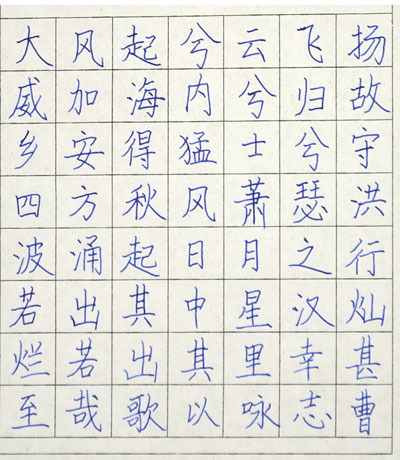 大风起兮云飞扬
威加海内兮归故
乡安得猛士兮守
四方秋风萧瑟洪
波涌起日月之行
若出其中星汉灿
烂若出其里幸甚
至哉歌以咏志曹